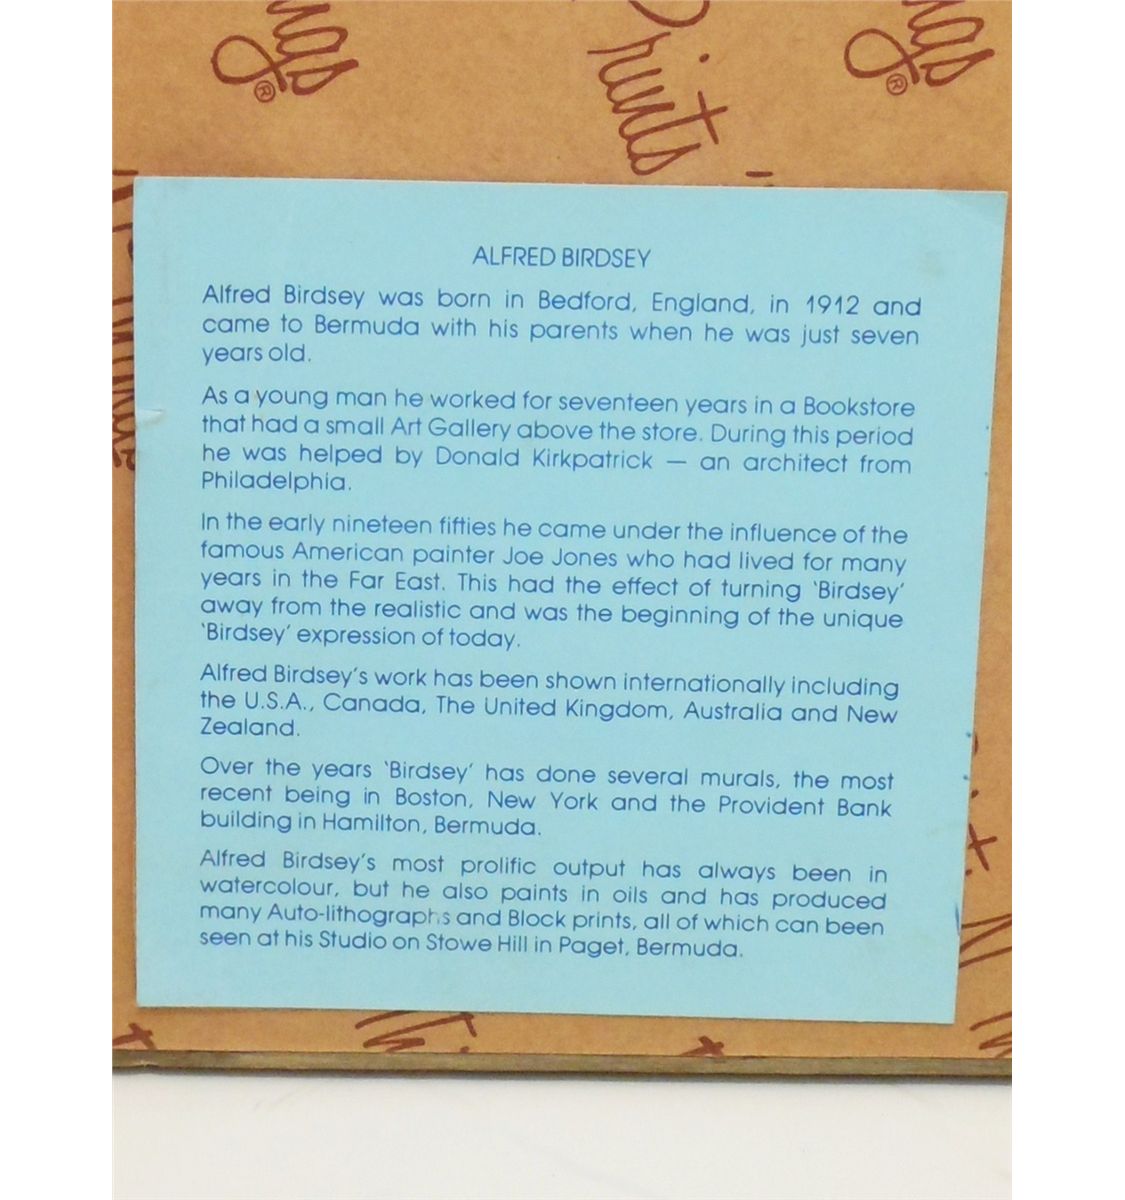 ngs
®
Prints
ngs
®
ALFRED BIRDSEY
Alfred Birdsey was born in Bedford, England, in 1912 and
came to Bermuda with his parents when he was just seven
years old.
As a young man he worked for seventeen years in a Bookstore
that had a small Art Gallery above the store. During this period
he was helped by Donald Kirkpatrick — an architect from
Philadelphia.
In the early nineteen fifties he came under the influence of the
famous American painter Joe Jones who had lived for many
years in the Far East. This had the effect of turning ‘Birdsey’
away from the realistic and was the beginning of the unique
‘Birdsey’ expression of today.
Alfred Birdsey’s work has been shown internationally including
the U.S.A., Canada, The United Kingdom, Australia and New
Zealand.
Over the years ‘Birdsey’ has done several murals, the most
recent being in Boston, New York and the Provident Bank
building in Hamilton, Bermuda.
Alfred Birdsey’s most prolific output has always been in
watercolour, but he also paints in oils and has produced
many Auto-lithographs and Block prints, all of which can been
seen at his Studio on Stowe Hill in Paget, Bermuda.